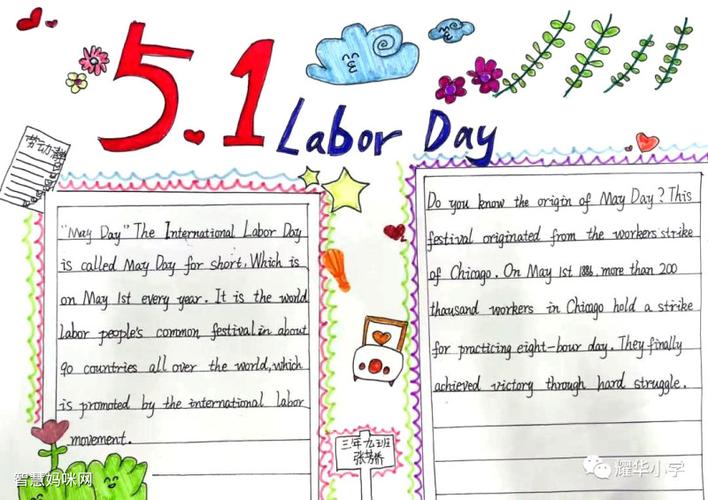 5.1 Labor Day
劳动清
"May Day" The International Labor Day
is called May Day for short. Which is
on May 1st every year. It is the world
labor people's common festival in about
90 countries all over the world, which
is promoted by the international labor
movement.
Do you know the origin of May Day? This
festival originated from the workers strike
of Chicago. On May 1st 1886, more than 200
thousand workers in Chicago hold a strike
for practicing eight-hour day. They finally
achieved victory through hard struggle.
三年九班
张芳桥
智慧妈咪网
耀华小学